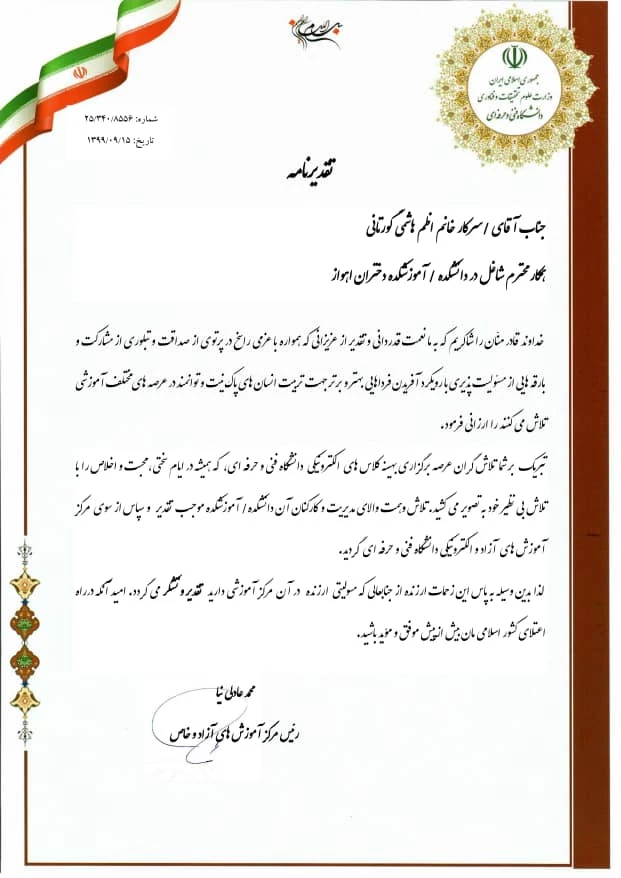 جمهوری اسلامی ایران
وزارت علوم تحقیقات و فناوری
دانشگاه فنی و حرفه ای
شماره: ۲۵/۳۴۰/۸۵۵۶
تاریخ: ۱۳۹۹/۰۹/۱۵
تقدیرنامه
جناب آقای /سرکار خانم اعظم هاشمی گورتانی
همکار محترم شاغل در دانشکده / آموزشکده دختران اهواز
خداوند قادر منان را شاکریم که به ما نعمت قدردانی و تقدیر از عزیزانی که همواره با عزمی راسخ در پرتوی از صداقت و تبلوری از مشارکت و
بارقه هایی از مسئولیت پذیری با رویکرد آفریدن فرداهایی بهتر و برتر جهت تربیت انسان های پاک نیت و توانمند در عرصه های مختلف آموزشی
تلاش می کنند را ارزانی فرمود.
تبریک بر شما تلاش گران عرصه برگزاری بهینه کلاس های الکترونیکی دانشگاه فنی و حرفه ای، که همیشه در ایام سختی، محبت و اخلاص را با
تلاش بی نظیر خود به تصویر می کشید. تلاش و همت والای مدیریت و کارکنان آن دانشکده/ آموزشکده موجب تقدیر و سپاس از سوی مرکز
آموزش های آزاد و الکترونیکی دانشگاه فنی و حرفه ای گردید.
لذا بدین وسیله به پاس این زحمات ارزنده از جنابعالی که مسولیتی ارزنده در آن مرکز آموزشی دارید تقدیر و تشکر می گردد. امید آنکه در راه
اعتلای کشور اسلامی مان بیش از پیش موفق و موید باشید.
محمد عادلی نیا
رئیس مرکز آموزش های آزاد و خاص